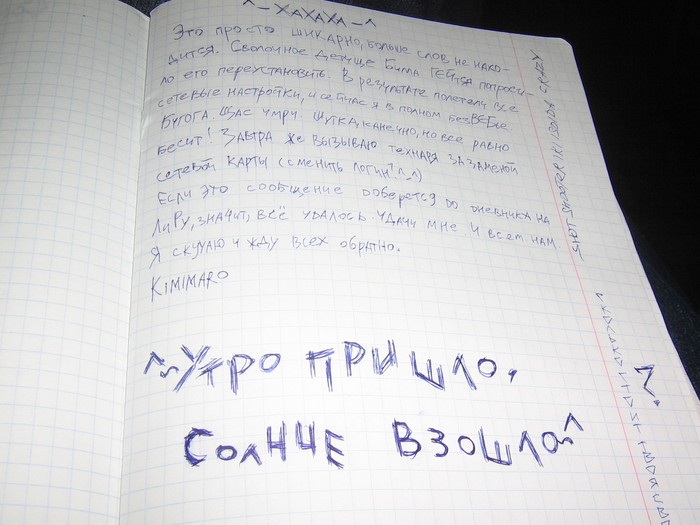 ^-ХАХАХА-^
Это просто шикарно, больше слов не нахо-
дится. Сволочное детище Билла Гейтса попроси-
ло его переустановить. В результате полетели все
сетевые настройки, и сейчас я в полном безВЕБье
Бугога. Щас умру. Шутка, конечно, но всё равно
бесит! Завтра же вызываю технаря за заменой
сетевой карты (сменить логин! ^_^)
Если это сообщение доберется до дневника на
ЛиРу, значит, всё удалось. Удачи мне. И всем нам.
Я скучаю и жду всех обратно.
KIMIMARO
^~Утро пришло,
Солнце взошло~^
SHOT SHOOTER CRAZY